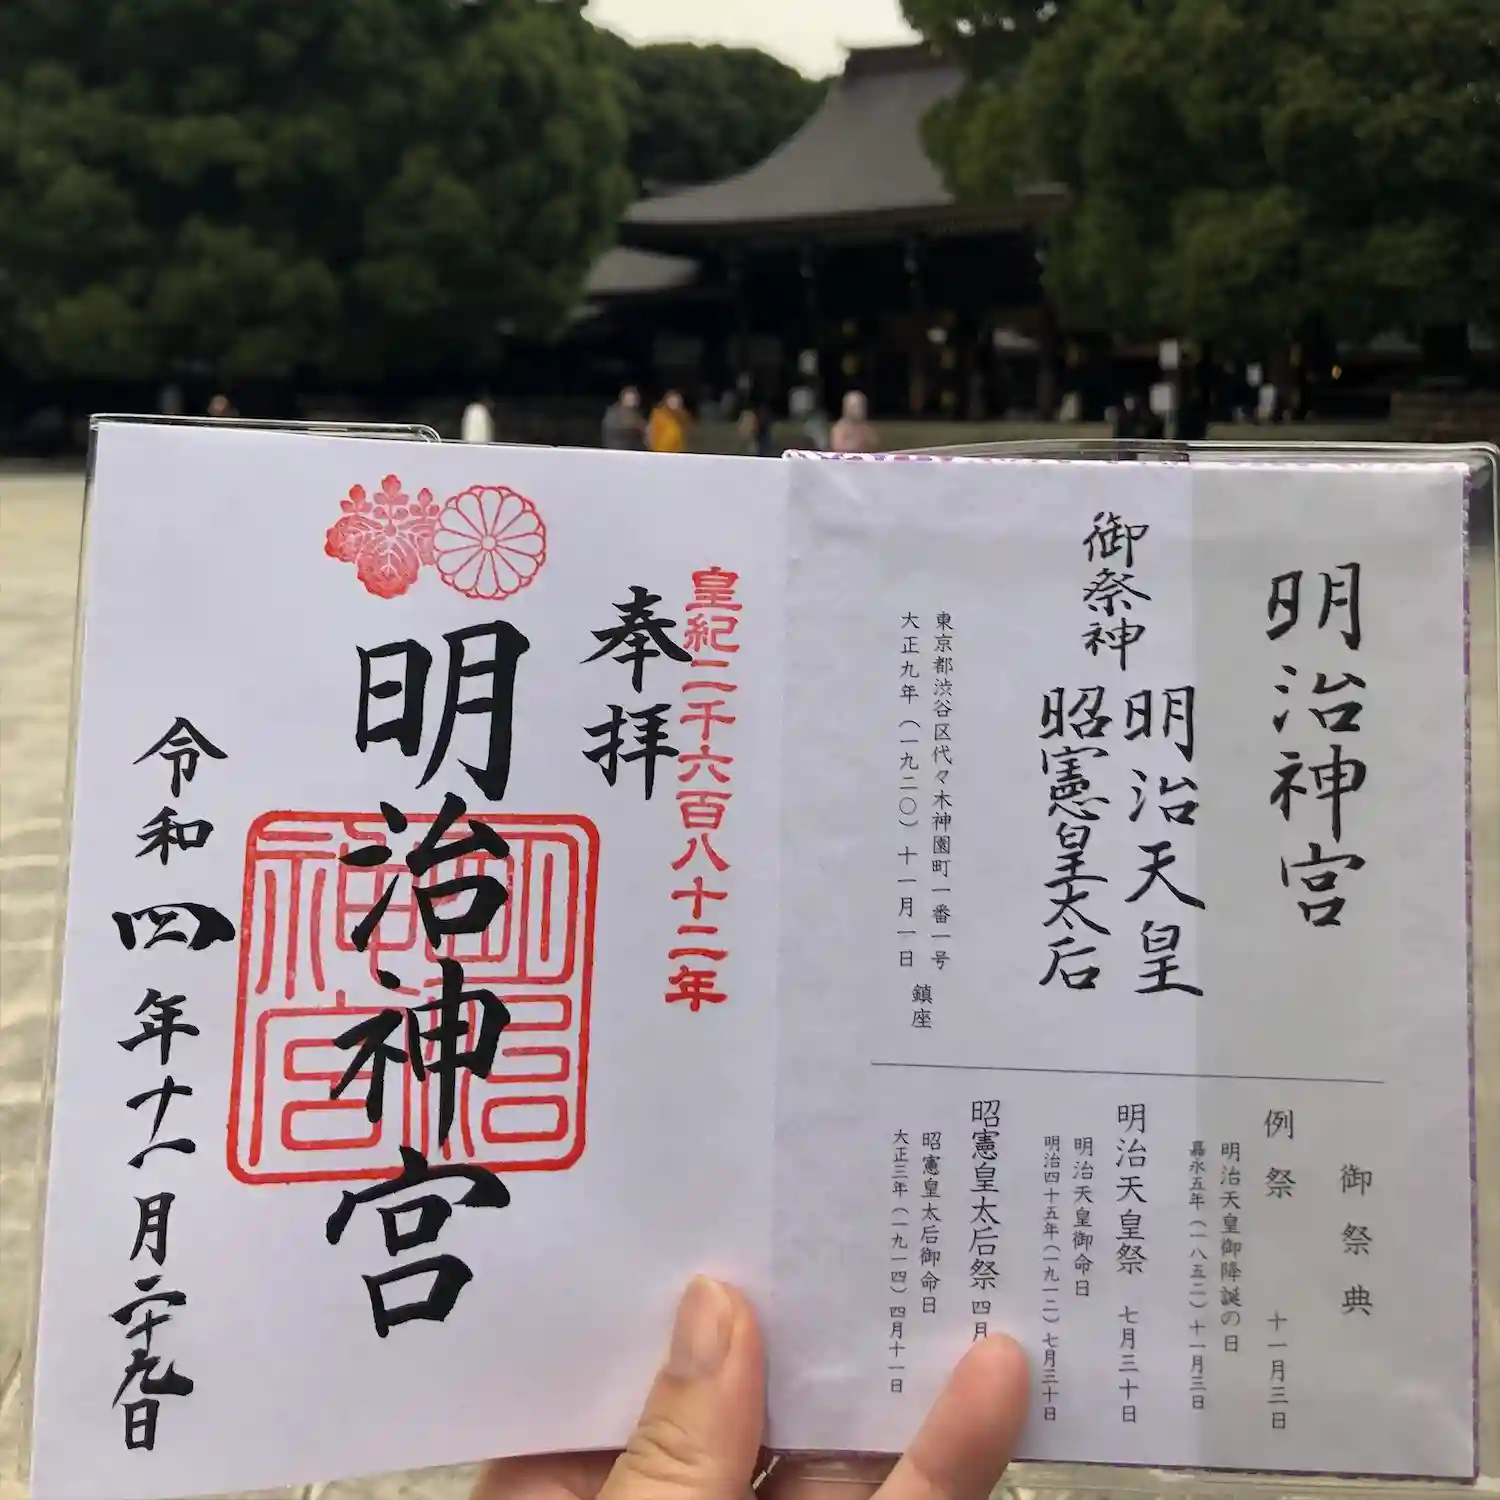 明治神宮
御祭神
明治天皇
昭憲皇太后
東京都渋谷区代々木神園町一番一号
大正九年（一九二〇）十一月一日
鎮座
御祭典
例祭 十一月三日
明治天皇御降誕の日
嘉永五年（一八五二）十一月三日
明治天皇祭 七月三十日
明治天皇御命日
明治四十五年（一九一二）七月三十日
昭憲皇太后祭 四月
昭憲皇太后御命日
大正三年（一九一四）四月十一日
皇紀二千六百八十二年
奉拝
明治神宮
明治神宮
令和四年十一月二十九日